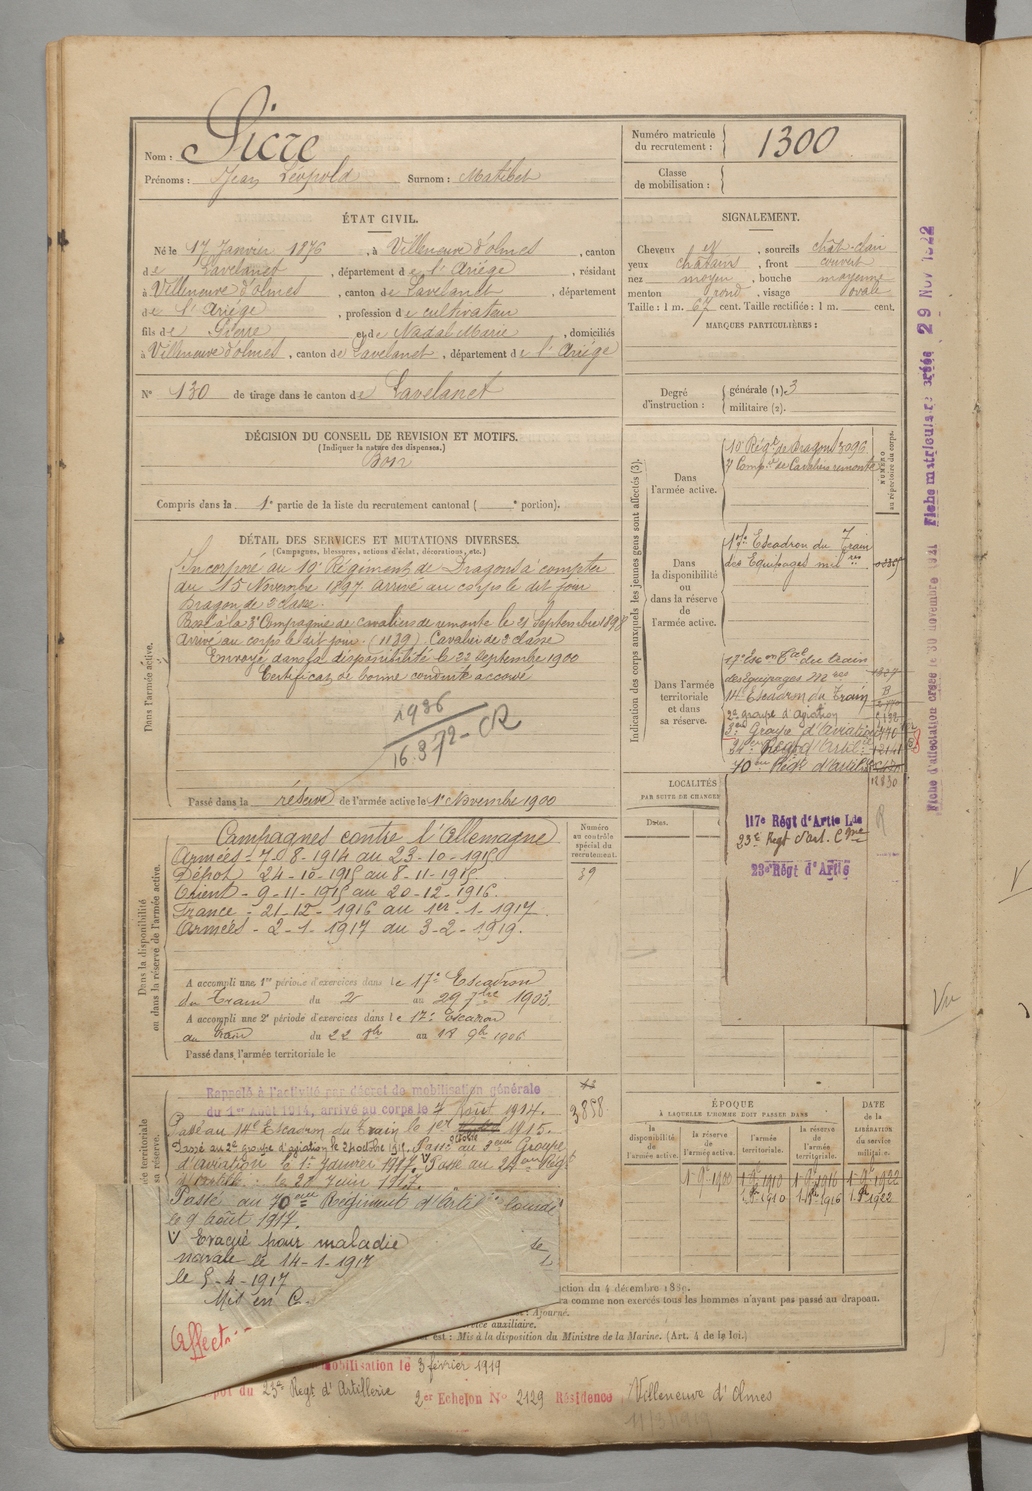 Nom : Sicre
Prénoms : Jean Léopold Surnom : Matibet
Numéro matricule du recrutement : 1300
Classe de mobilisation :
ÉTAT CIVIL.
Né le 17 Janvier 1876, à Villeneuve d'olmes, canton
de Lavelanet, département de l'Ariége, résidant
à Villeneuve d'olmes, canton de Lavelanet, département
de l'Ariége, profession de cultivateur
fils de Pierre et de Nadal Marie, domiciliés
à Villeneuve d'olmes, canton de Lavelanet, département de l'Ariége
N° 130 de tirage dans le canton de Lavelanet
SIGNALEMENT.
Cheveux et, sourcils chât-clair
yeux chatains, front couvert
nez moyen, bouche moyenne
menton rond, visage ovale
Taille : 1 m. 67 cent. Taille rectifiée : 1 m. cent.
MARQUES PARTICULIÈRES :
Degré d'instruction : générale (1). 3
militaire (2).
DÉCISION DU CONSEIL DE REVISION ET MOTIFS.
(Indiquer la nature des dispenses.)
Bon
Compris dans la 1e partie de la liste du recrutement cantonal ( e portion).
DÉTAIL DES SERVICES ET MUTATIONS DIVERSES.
(Campagnes, blessures, actions d'éclat, décorations, etc.)
Dans l'armée active.
Incorporé au 10e Régiment de Dragons à compter
du 15 Novembre 1897 arrivé au corps le dit jour
Dragon de 2e classe.
Passé à la 3e Compagnie de cavaliers de remonte le 21 Septembre 1898
Arrivé au corps le dit jour (1189). Cavalier de 2e classe
Envoyé dans la disponibilité le 22 Septembre 1900
Certificat de bonne conduite accordé
1936
16.372 - CR
Passé dans la réserve de l'armée active le 1er Novembre 1900
Indication des corps auxquels les jeunes gens sont affectés (3).
NUMÉRO au répertoire du corps.
Dans l'armée active.
10e Régt de Dragons 3096
Compie de Cavaliers remonte
Dans la disponibilité ou dans la réserve de l'armée active.
Escadron du Train
des Equipages milres
Dans l'armée territoriale et dans sa réserve.
17e Escon Teal du train
des Equipages Mres
14e Escadron du Train
2e groupe d'aviation
3e Groupe d'Aviation
70me Régt d'artie
12830
117e Régt d'Artie Lde
23e Regt d'art. Cgne
23e Régt d'Artie
LOCALITÉS
PAR SUITE DE CHANGEM
Dates.
Dans la disponibilité ou dans la réserve de l'armée active.
Campagnes contre l'Allemagne
Armées - 7-8-1914 au 23-10-1915
Dépôt 24-10-1915 au 8-11-1915
Orient - 9-11-1915 au 20-12-1916.
France - 21-12-1916 au 1er-1-1917.
Armées - 2-1-1917 au 3-2-1919.
Numéro au contrôle spécial du recrutement.
39
A accompli une 1re période d'exercices dans le 17e Escadron
du Train du 2 au 29 7bre 1903.
A accompli une 2e période d'exercices dans le 17e Escadron
du Train du 22 8b au 18 9b 1906
Passé dans l'armée territoriale le
Rappelé à l'activité par décret de mobilisation générale
du 1er Août 1914, arrivé au corps le 7 Août 1914.
3858
Passé au 14e Escadron du Train le 1er octobre 1915.
Passé au 2e groupe d'aviation le 2 octobre 1915. Passé au 3eme Groupe
d'aviation le 1r Janvier 1917. V Passé au 24eme Régt
d'artill. le 27 Juin 1917.
Passé au 70eme Régiment d'Artie lourde
le 9 Août 1917.
V Evacué pour maladie
navale le 14-1-1917
le 5-4-1917
Mis en C.
Affect
mobilisation le 3 février 1919
du 23e Régt d'Artillerie
2er Echelon N° 2129 Résidence Villeneuve d'Olmes
11/3/1919
ÉPOQUE
A LAQUELLE L'HOMME DOIT PASSER DANS
la disponibilité de l'armée active.
la réserve de l'armée active.
l'armée territoriale.
la réserve de l'armée territoriale.
DATE de la LIBÉRATION du service militaire.
1er 9b 1900 1er 9b 1910 1er 9b 1916 1er 9b 1922
1er 8b 1910 1er 8b 1916 1er 8b 1922
ction du 4 décembre 1889.
ra comme non exercés tous les hommes n'ayant pas passé au drapeau.
: Ajourné.
vice auxiliaire.
est : Mis à la disposition du Ministre de la Marine. (Art. 4 de la loi.)
Fiche d'affectation créée le 30 novembre 1941
Fiche matricule créée 29 NOV 1922
Vu